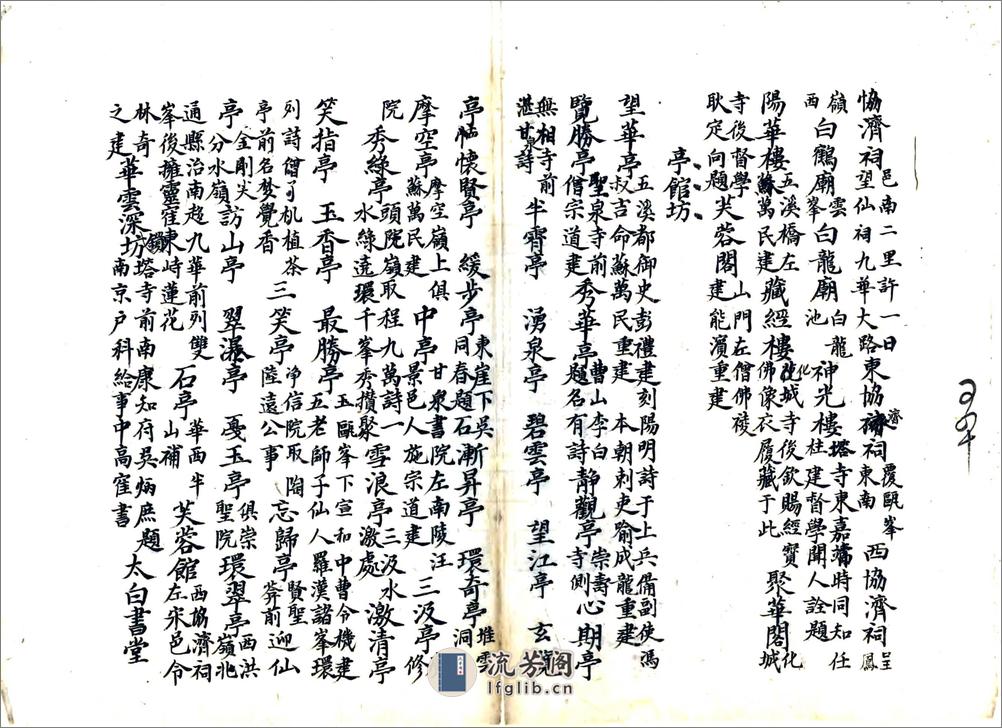 協濟祠邑南二里許一日望仙祠九華大路東協濟祠覆甌峯東南西協濟祠鳳
嶺西白鶴廟雲峯白龍廟白龍池神光樓塔寺東嘉靖時同知任杜建督學聞人詮題
陽華樓五溪橋左蘇萬民建藏經樓化城寺後欽賜經實佛像衣履藏于此聚華閣化城
寺後督學耿定向題芙蓉閣山門左僧佛稜建能濱重建
亭館坊
望華亭五溪都御史彭禮建刻陽明詩于上兵備副使馮叔吉命蘇萬民重建本朝刺史喻成龍重建
覽勝亭聖泉寺前僧宗道建秀華亭曹山李白題名有詩靜觀亭崇壽寺側心期亭
無相寺前湛甘泉詩半霄亭湧泉亭碧雲亭望江亭玄覽
亭懷賢亭緩步亭東崖下吳同春題石漸昇亭環奇亭堆雲洞
摩空亭摩空嶺上俱蘇萬民建中亭甘泉書院左南陵汪景邑人施宗道建三汲亭修
院秀綠亭頭陀嶺取程九萬詩一水綠遶環千峯秀攢聚雪浪亭三汲水激處激清亭
笑指亭玉香亭最勝亭玉甌峯下宣和中曹令機建五老師子仙人羅漢諸峯環
列亭前詩僧可机植茶名梦覺香三笑亭淨信院取陶陸遠公事忘歸亭賢聖莽前迎仙
亭金剛尖分水嶺訪山亭翠瀑亭戞玉亭俱崇聖院環翠亭西洪嶺北
通縣治南超九華前列雙峯後擁靈窪東峙蓮花石亭華西半山補芙蓉館西協濟祠左宋邑令
林奇之建華雲深坊塔寺前南康知府吳炳庶題南京户科給事中高窪書太白書堂
流芳阁
lfglib.cn